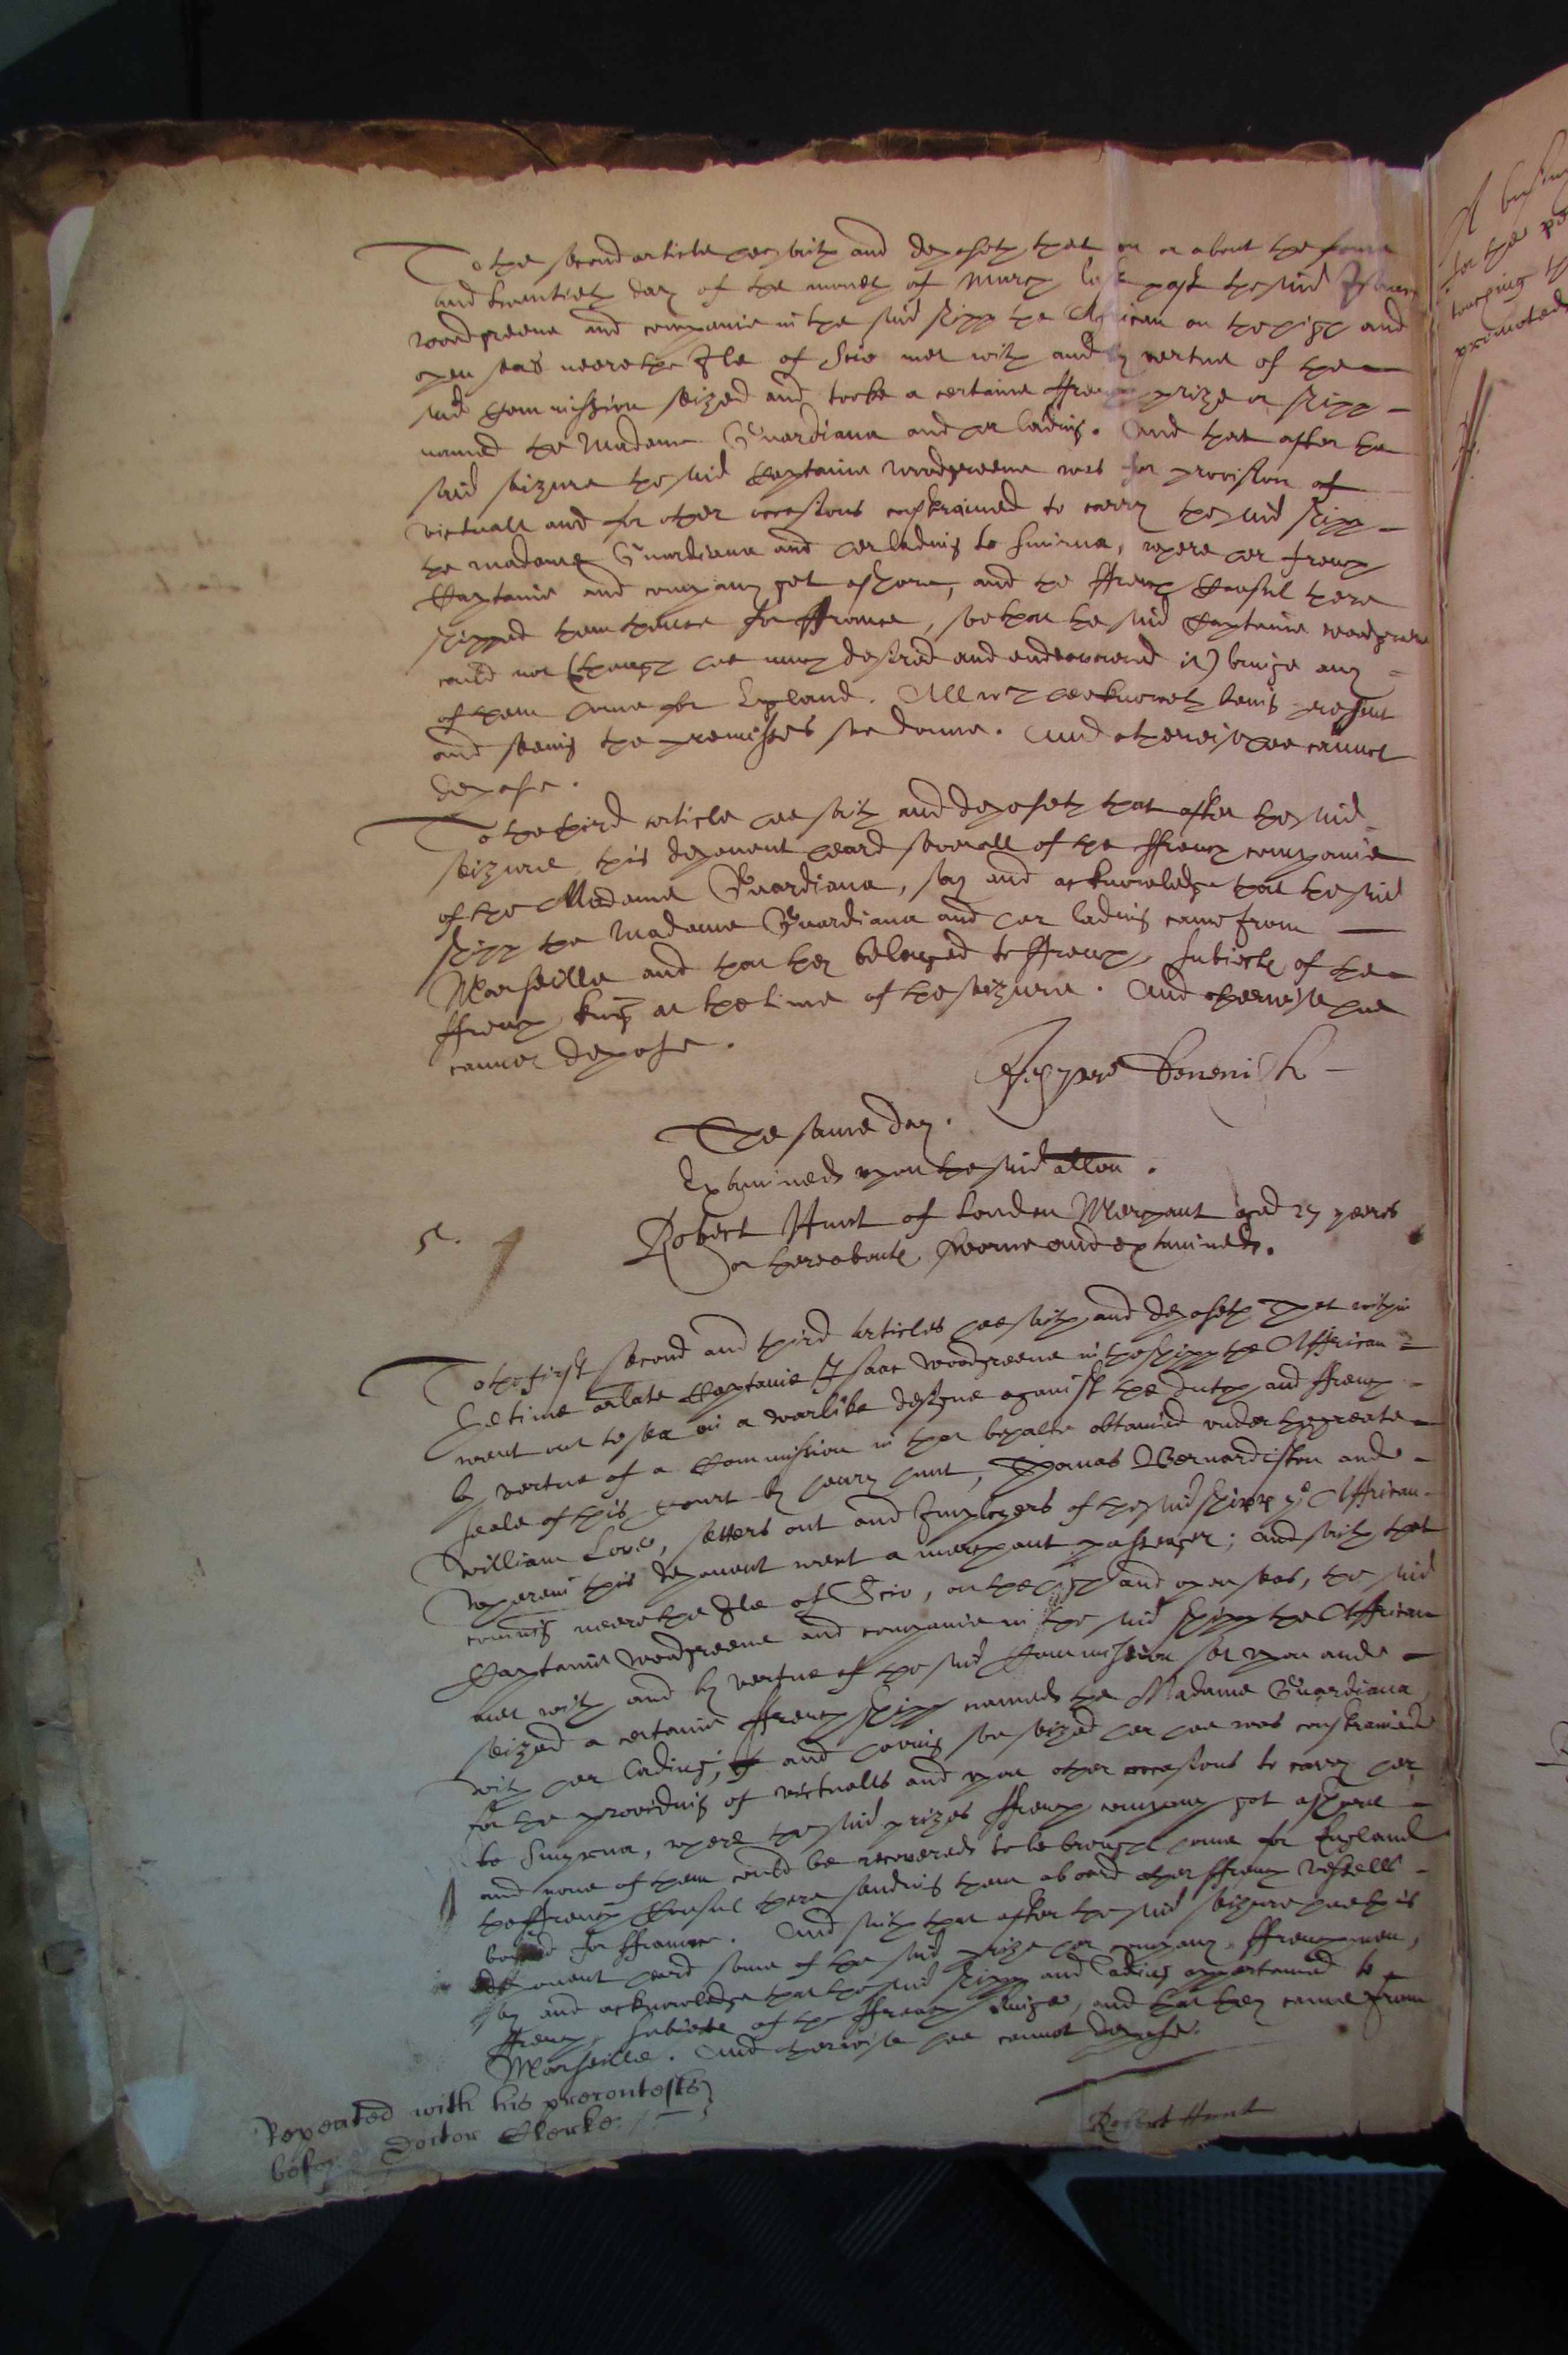 To the second article hee saith and deposeth that on or about the foure
and twentieth day of the moneth of March last past the said Isaac
Woodgreene and companie in the said shipp the African on the high and
open seas neere the Ile of Scio met with and by vertue of the
said Commission seized and tooke a certaine ffrench prize or shipp
named the Madame Guardiana and her lading. And that after the
said seizure the said Captaine Woodgreene was for provision of
victuall and for other occasions constrained to carry the said shipp
the Madame Guardiana and her lading to Smirna, where her french
Captaine and company got ashore, and the ffrench Consul there
shipped them thence for ffrance, soe that the said Captaine Woodgreene
could not (though hee much desired and endeavoured it) bringe any
of them home for England. All wch hee knoweth being present
and seeing the premisses soe donne. And otherwise hee cannot
depose.
To the third article hee saith and deposeth that after the said
seizure this deponent heard severall of the ffrench companie
of the Madame Guardiana, say and acknowledge that the said
shipp the Madame Guardiana and her lading came from
Marseille and that they belonged to ffrench subiects of the
ffrench king at the time of the seizure. And otherwise hee
cannot depose.
The same day.
Examined upon the said allon.
5.
Robert Hunt of London Merchant aged 27 yeares
or thereabouts sworne and examined.
To the first second and third articles hee saith and deposeth That within
the time arlate Captaine Isaac Woodgreene in the shipp the Affrican
went out to sea on a warlike designe against the dutch and ffrench
by vertue of a Commission in that behalfe obtained under the greate
seale of this Court by henry hunt, Thomas Bernardiston and
William Love, setters out and Imployers of the said shipp ye Affrican
wherein this deponent went a merchant passenger; and saith that
coming neere the Ile of Scio, on the high and open seas, the said
Captaine Woodgreene and companie in the said shipp the Affrican
met with and by vertue of the said Commission set upon and
seized a certaine ffrench shipp named the Madame Guardiana
with her lading; and having soe seized her hee was constrained
for the providing of victualls and upon other occasions to carry her
to Smyrna, where the said prizes ffrench company got ashore
and none of them could be recovered to be brought home for England
the ffrench Consul there sending them aboard other ffrench vessells
bound for ffrance. And saith that after the said seizure hee this
deponent heard some of the said prize her company, ffrenchmen,
say and acknowledge that the said shipp and lading appertained to
ffrench subiects of the ffrench kinge, and that they came from
Marseille. And otherwise hee cannot depose.
Repeated with his precontests
before Doctor Clerke.
Robert Hunt